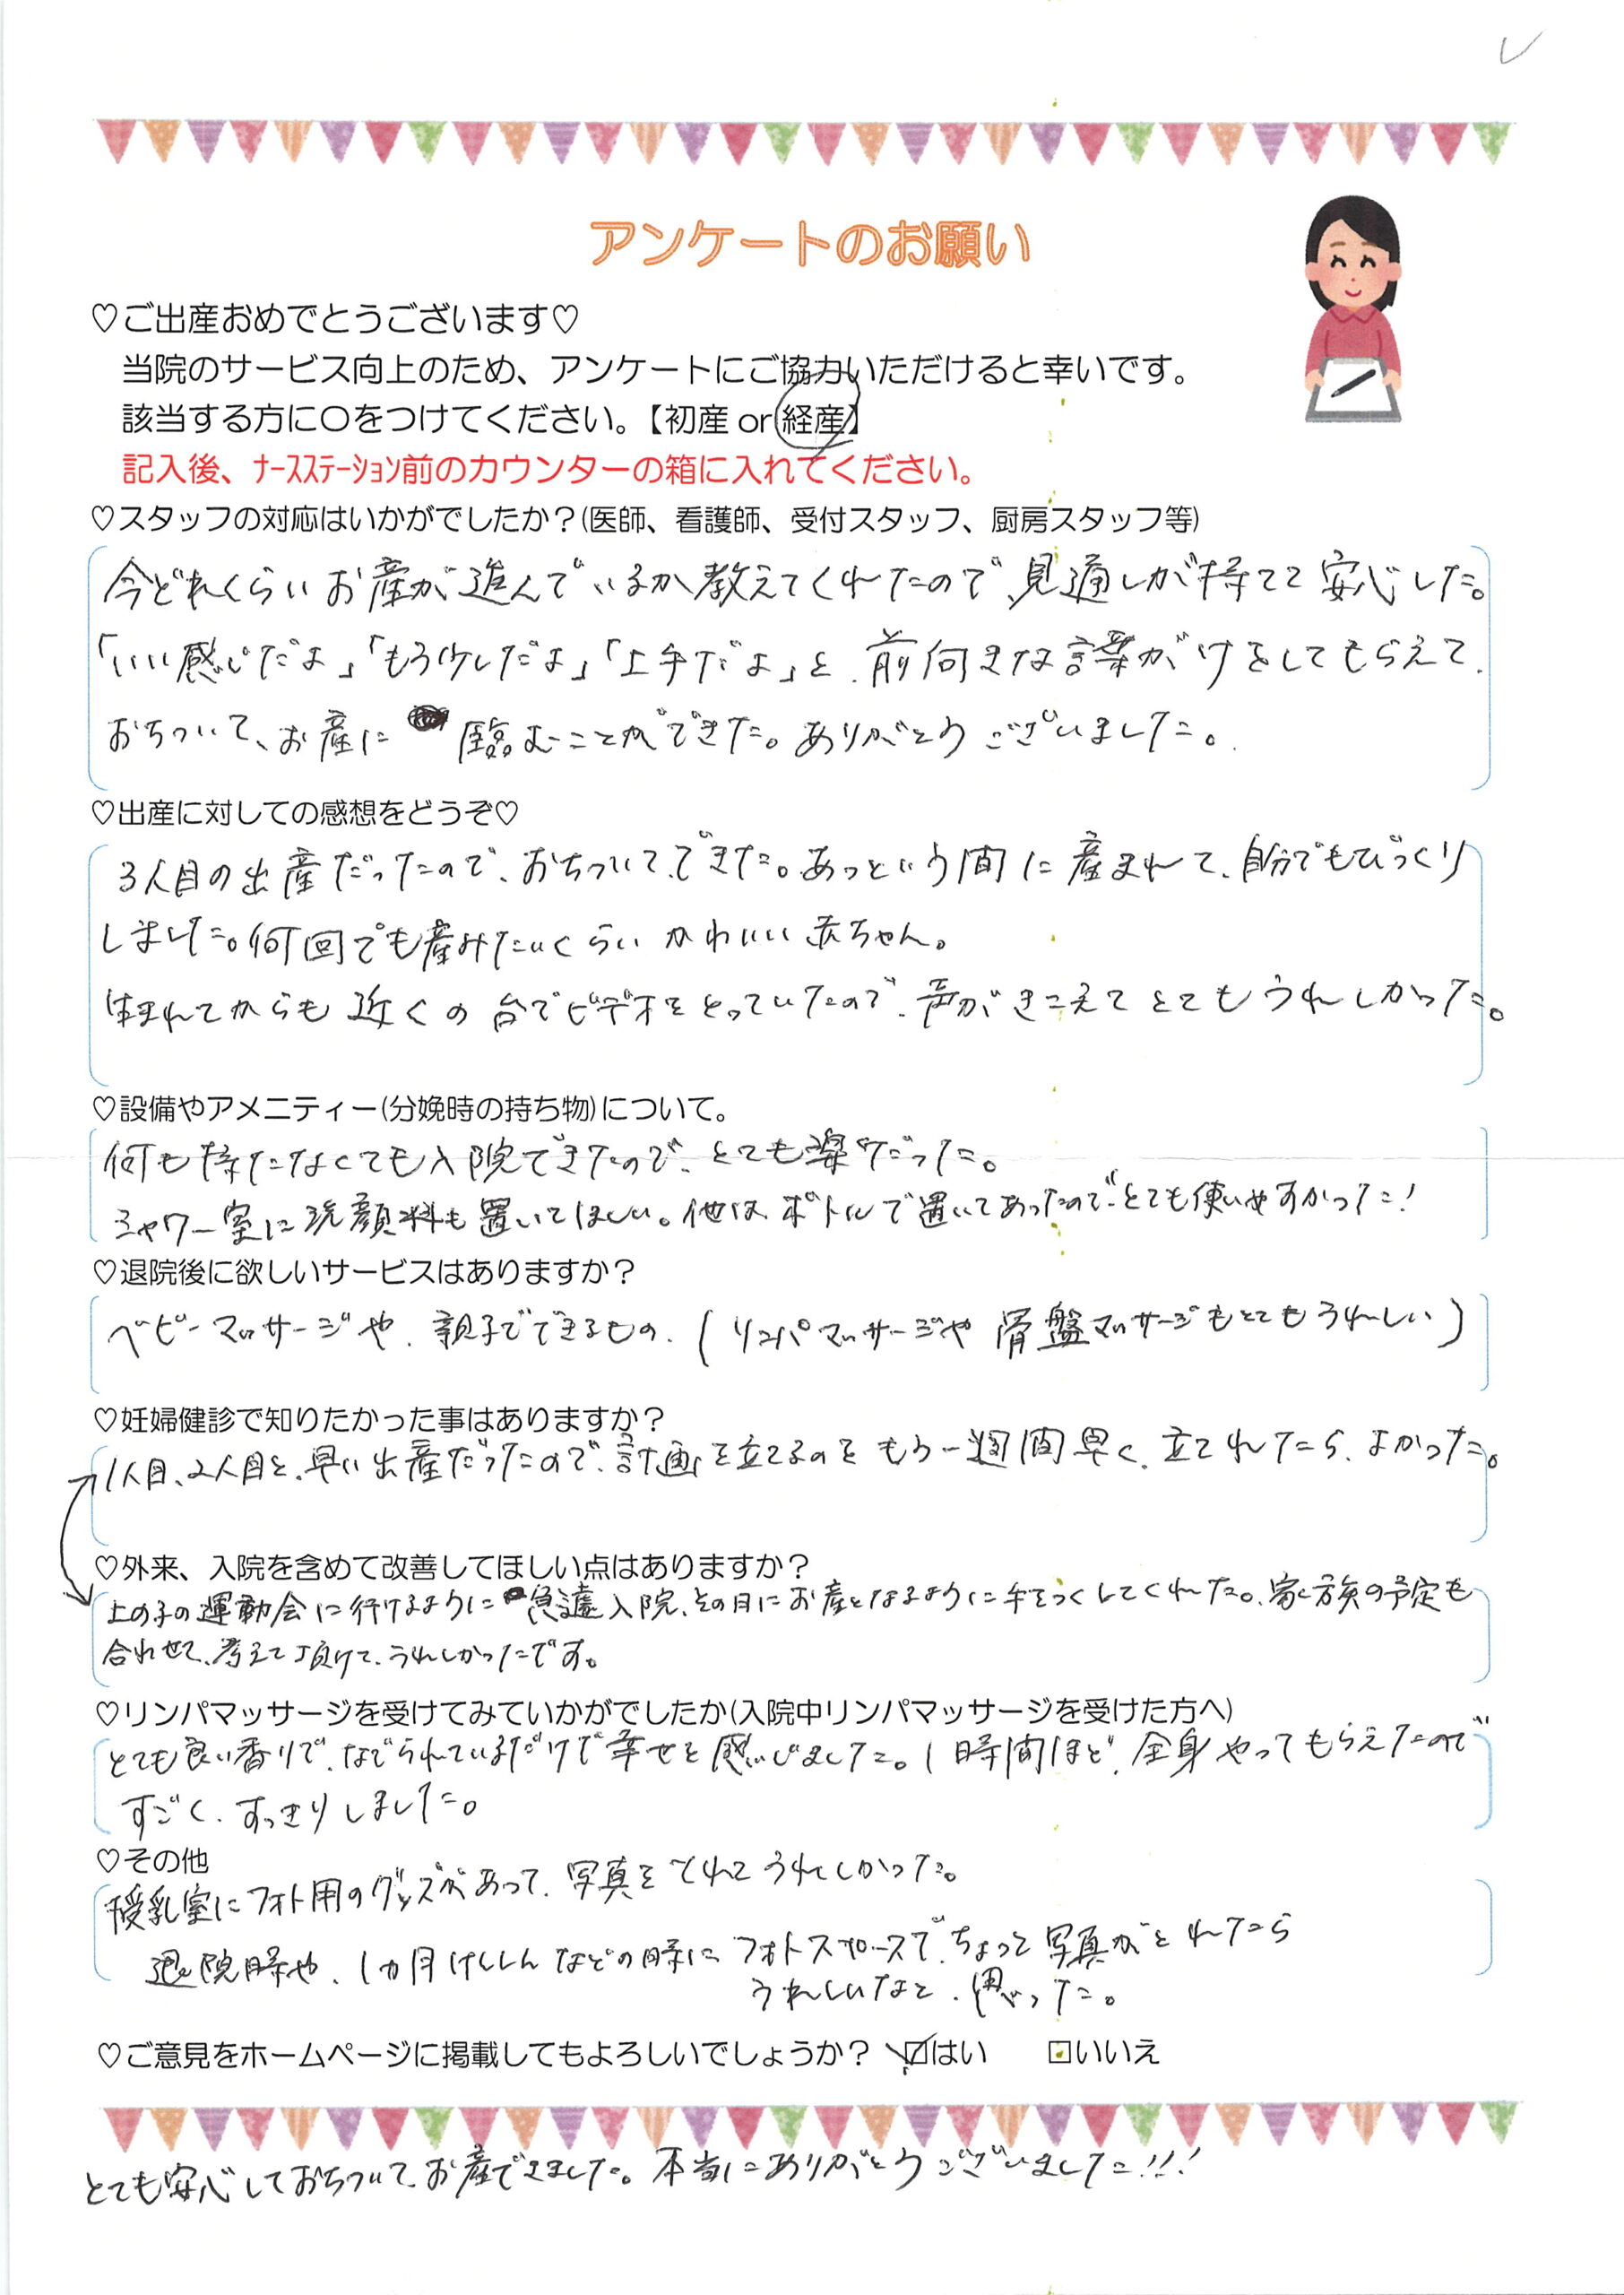 アンケートのお願い
♡ご出産おめでとうございます♡
当院のサービス向上のため、アンケートにご協力いただけると幸いです。
該当する方に〇をつけてください。【初産 or 経産】
記入後、ﾅｰｽｽﾃｰｼｮﾝ前のカウンターの箱に入れてください。
♡スタッフの対応はいかがでしたか？(医師、看護師、受付スタッフ、厨房スタッフ等)
今どれくらいお産が進んでいるか教えてくれたので、見通しが持てて安心した。
「いい感じだよ」「もう少しだよ」「上手だよ」と、前向きな言葉がけをしてもらえて、
おちついて、お産に臨むことができた。ありがとうございました。
♡出産に対しての感想をどうぞ♡
3人目の出産だったので、おちついて、できた。あっという間に産まれて、自分でもびっくり
しました。何回でも産みたいくらいかわいい赤ちゃん。
生まれてからも近くの台でビデオをとっていたので、声がきこえてとてもうれしかった。
♡設備やアメニティー(分娩時の持ち物)について。
何も持たなくても入院できたので、とても楽だった。
シャワー室に洗顔料も置いてほしい。他は、ボトルで置いてあったので、とても使いやすかった！
♡退院後に欲しいサービスはありますか？
ベビーマッサージや、親子でできるもの、(リンパマッサージや骨盤マッサージもとてもうれしい)
♡妊婦健診で知りたかった事はありますか？
1人目、2人目と、早い出産だったので、計画を立てるのをもう一週間早く、立てれたら、よかった。
♡外来、入院を含めて改善してほしい点はありますか？
上の子の運動会に行けるように急遽入院、その日にお産となるように手をつくしてくれた。家族の予定も
合わせて、考えて頂けて、うれしかったです。
♡リンパマッサージを受けてみていかがでしたか(入院中リンパマッサージを受けた方へ)
とても良い香りで、なでられているだけで幸せを感じました。1時間ほど、全身やってもらえたので
すごく、すっきりしました。
♡その他
授乳室にフォト用のグッズがあって、写真をとれてうれしかった。
退院時や、1ヵ月けんしんなどの時にフォトスペースで、ちょっと写真がとれたら
うれしいなと、思った。
♡ご意見をホームページに掲載してもよろしいでしょうか？ ☑はい □いいえ
とても安心しておちついて、お産できました。本当にありがとうございました!!!